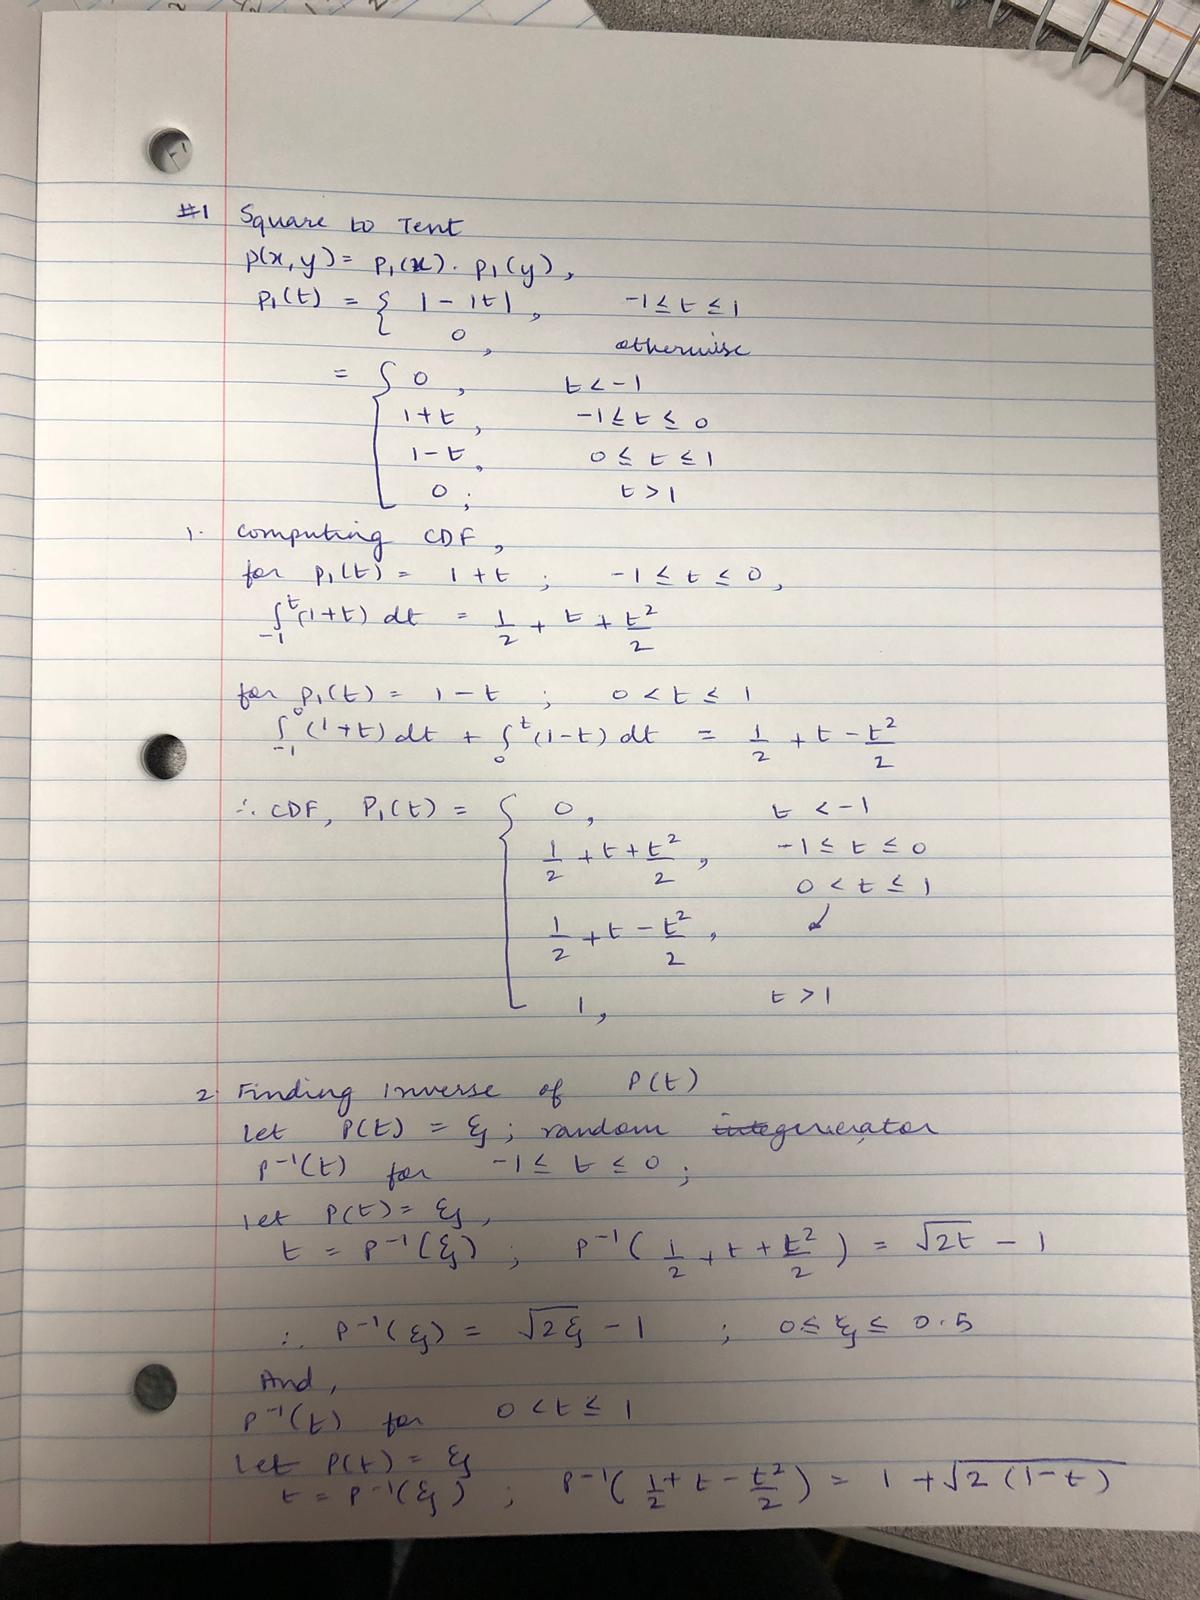 #1 Square to Tent
p(x,y) = p₁(x) · p₁(y),
p₁(t) = { 1 - |t|, -1 ≤ t ≤ 1
0, otherwise
= { 0, t < -1
1+t, -1 ≤ t ≤ 0
1-t, 0 ≤ t ≤ 1
0; t > 1
1. Computing CDF,
for p₁(t) = 1+t ; -1 ≤ t ≤ 0,
∫₋₁ᵗ (1+t) dt = 1/2 + t + t²/2
for p₁(t) = 1-t ; 0 < t ≤ 1
∫₋₁⁰ (1+t) dt + ∫₀ᵗ (1-t) dt = 1/2 + t - t²/2
∴ CDF, P₁(t) = { 0, t < -1
1/2 + t + t²/2, -1 ≤ t ≤ 0
0 < t ≤ 1
1/2 + t - t²/2, ↙
1, t > 1
2. Finding inverse of P(t)
Let P(t) = ξ ; random generator
P⁻¹(t) for -1 ≤ t ≤ 0 ;
let P(t) = ξ,
t = P⁻¹(ξ) ; P⁻¹(1/2 + t + t²/2) = √2t - 1
∴ P⁻¹(ξ) = √2ξ - 1 ; 0 ≤ ξ ≤ 0.5
And,
P⁻¹(t) for 0 < t ≤ 1
Let P(t) = ξ
t = P⁻¹(ξ) ; P⁻¹(1/2 + t - t²/2) = 1 + √2(1-t)